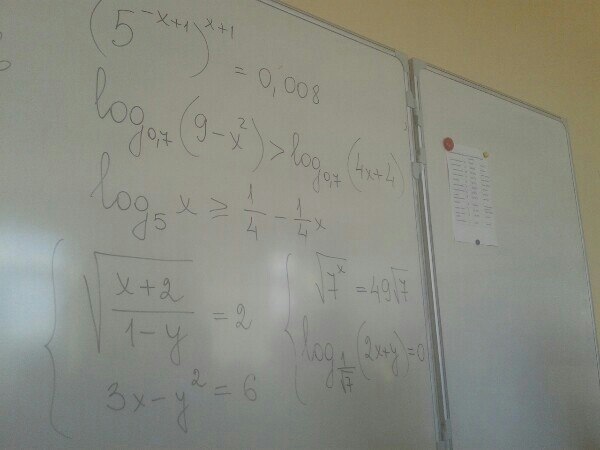 (5^{-x+1})^{x+1} = 0,008
log_{0,7}(9-x^2) > log_{0,7}(4x+4)
log_5 x ≥ \frac{1}{4} - \frac{1}{4}x
{ \sqrt{\frac{x+2}{1-y}} = 2
3x-y^2 = 6
{ \sqrt{7^x} = 49\sqrt{7}
log_{\frac{1}{\sqrt{7}}}(2x+y)=0